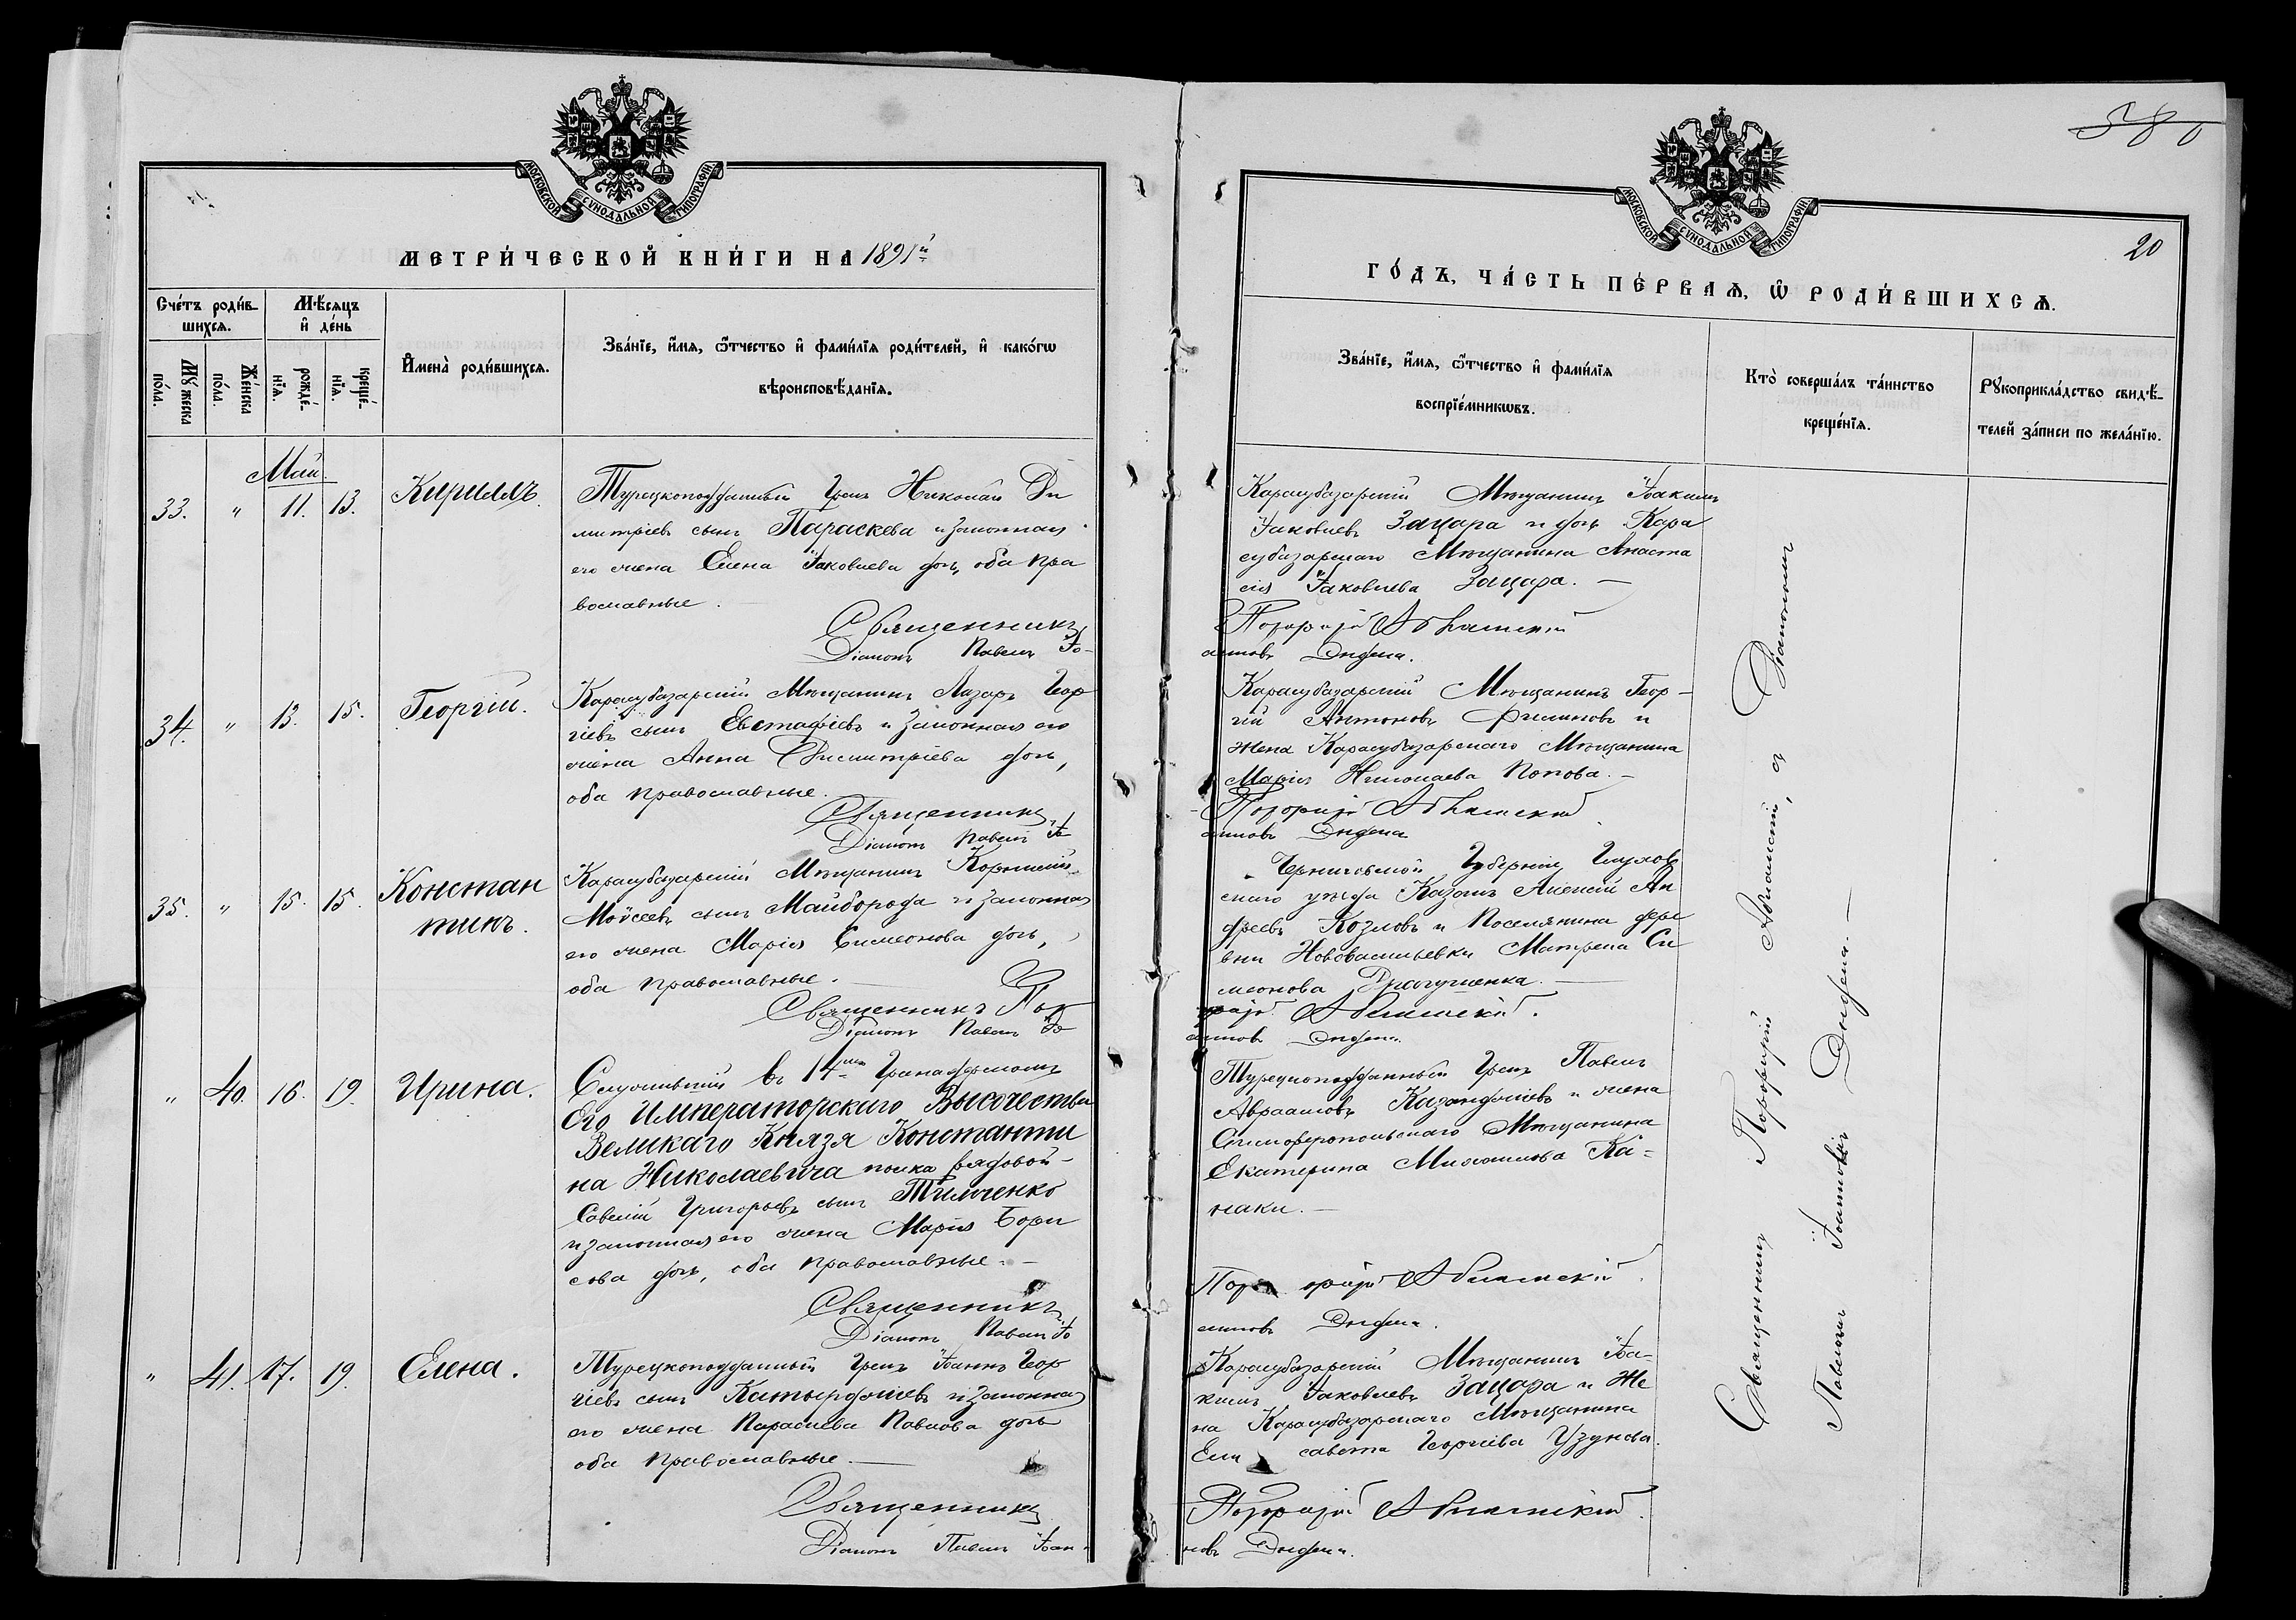 МОСКОВСКОЙ СѴНОДАЛЬНОЙ ТИПОГРАФІИ
МЕТРИ́ЧЕСКОЙ КНИ́ГИ НА 1891й
Сче́тъ роди́в-
шихся.
Мѣ́сяцъ
и҆ де́нь
Мꙋ́жеска
по́ла.
Же́нска
по́ла.
рожде́-
нїя.
креще́-
нїя.
И҆мена̀ роди́вшихся.
Зва́нїе, и҆́мя, ѻ҆́тчество и҆ фами́лїя роди́телей, и҆ како́гѡ
вѣроисповѣ́данїя.
Май.
33. " 11. 13. Кириллъ.
Турецкоподданный Грекъ Николай Ди
митріевъ сынъ Параскева и законная
его жена Елена Іаковлева дочь, оба пра
вославные.
Священникъ
Діаконъ Павелъ Іо-
34. " 13. 15. Георгій.
Карасубазарскій Мѣщанинъ Лазарь Геор
гіевъ сынъ Евстафіевъ и законная его
жена Анна Димитріева дочь,
оба православные.
Священникъ
Діаконъ Павелъ Іо
35. " 15. 15. Констан
тинъ.
Карасубазарскій Мѣщанинъ Корнилій
Моѵсеевъ сынъ Майборода и законная
его жена Марія Симеонова дочь,
оба православные.
Священникъ Пор
Діаконъ Павелъ Іо
" 40. 16. 19. Ирина.
Служившій въ 14мъ Гренадерскомъ
Его Императорскаго Высочества
Великаго Князя Константи
на Николаевича полка рядовой
Савелій Григорьевъ сынъ Тимченко
и законная его жена Марія Бори
сова дочь, оба православные.
Священникъ
Діаконъ Павелъ Іо
" 41. 17. 19. Елена.
Турецкоподданный Грекъ Іоаннъ Геор
гіевъ сынъ Катырджіевъ и законная
его жена Параскева Павлова дочь
оба православные.
Священникъ
Діаконъ Павелъ Іоан-
580
МОСКОВСКОЙ СѴНОДАЛЬНОЙ ТИПОГРАФІИ
20
ГО́ДЪ, ЧА́СТЬ ПЕ́РВАЯ, Ѡ҆ РОДИ́ВШИХСЯ.
Зва́нїе, и҆́мя, ѻ҆́тчество и҆ фами́лїя
воспрїе́мникѡвъ.
Кто̀ соверша́лъ та́инство
креще́нїя.
Рꙋкоприкла́дство свидѣ́-
телей за́писи по жела́нїю.
Карасубазарскій Мѣщанинъ Іоакимъ
Іаковлевъ Зацара и дочь Кара
субазарскаго Мѣщанина Анаста
сія Іаковлева Зацара.
Порфирій
анновъ
Карасубазарскій Мѣщанинъ Геор-
гій Антоновъ Филиповъ и
жена Карасубазарскаго Мѣщанина
Марія Николаева Попова.
Порфирій
анновъ
Черниговской Губерніи Глухов
скаго уѣзда Казакъ Алексій Ан
дреевъ Козловъ и Поселянина дере
вни Нововасильевки Матрена Си
меонова
фирій
анновъ
Турецкоподданный Грекъ Павелъ
Авраамовъ Казанджіевъ и жена
Симферопольскаго Мѣщанина
Екатерина Михаилова Ка-
наки.
Порфирій
анновъ
Карасубазарскій Мѣщанинъ Іоа-
кимъ Іаковлевъ Зацара и Же
на Карасубазарскаго Мѣщанина
Елисавета Георгіева Узунова.
Порфирій
новъ
Священникъ Порфирій съ Діакономъ
Павломъ Іоанновымъ